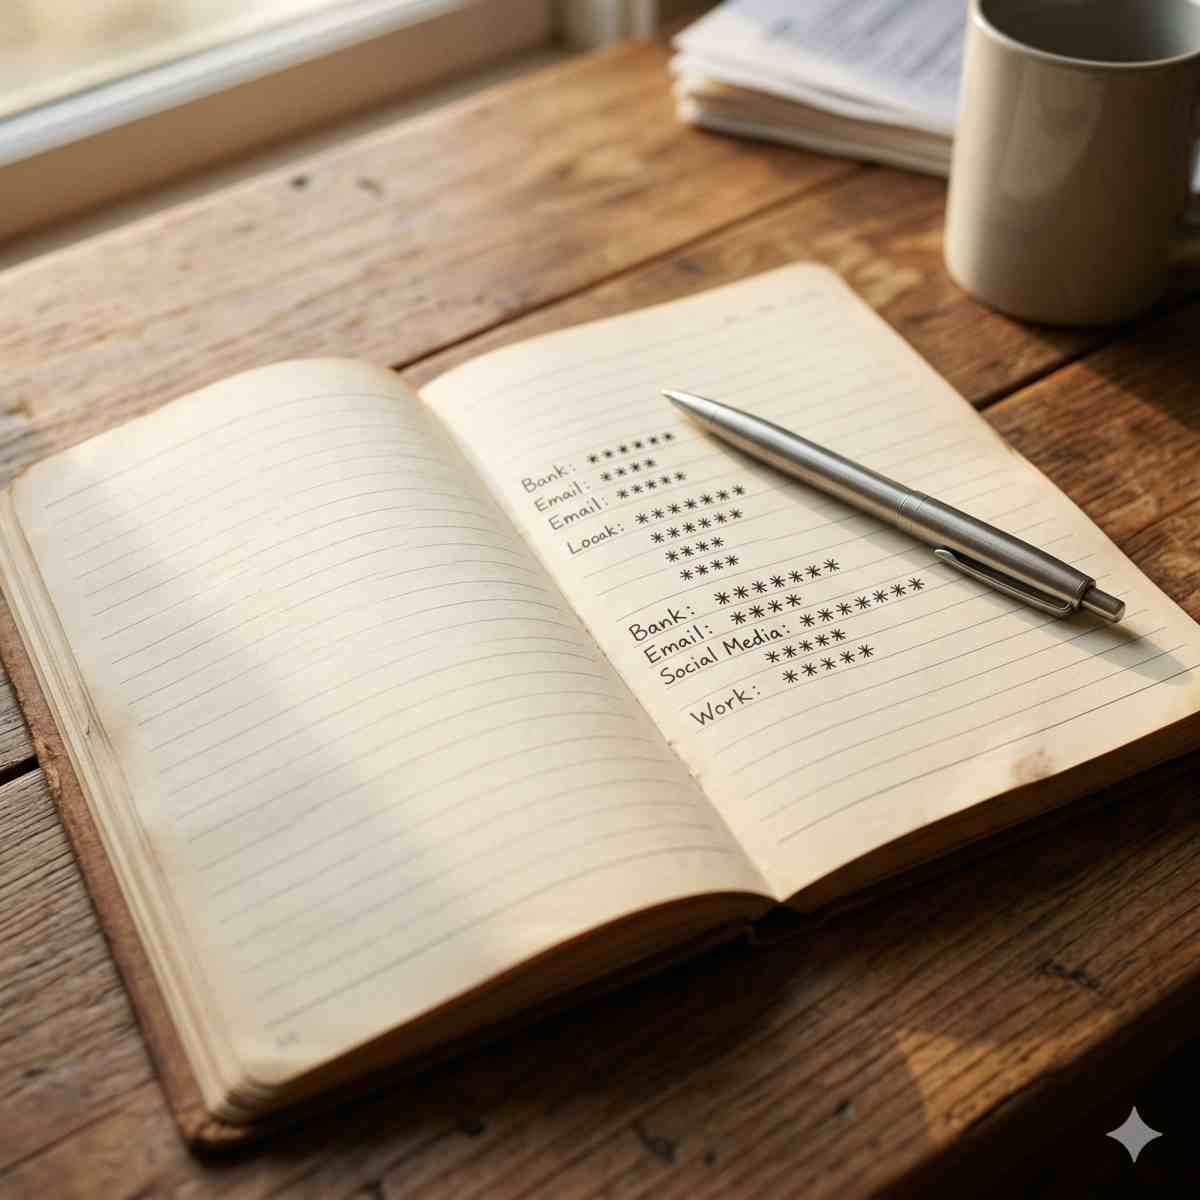 Bank: ******
Email: ****
Email: *****
Looak: *******
******
****
****
Bank: *******
Email: ****
Social Media: *******
*****
Work: *****